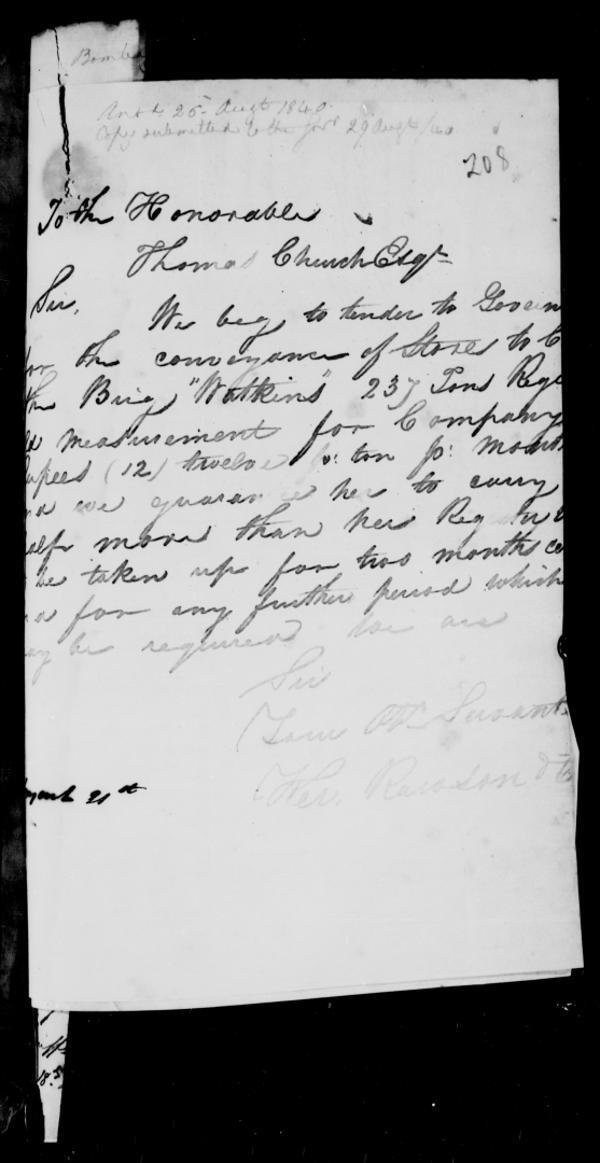 Bombay
Ansd. 25 Augt 1840.
Copy submitted to the Govr 29 Augt/40
208
To the Honorable
Thomas Church Esqr
Sir,
We beg to tender to Govern
for the conveyance of Stores to C
the Brig "Watkins" 237 Tons Regr
measurement for Company
upees (12) twelve pr: ton pr: Month
we guaran e her to carry
alf more than her Reg
be taken up for two months
for any further period which
ay be required We are
Sir
Your Obt Servants
Rawson & Co
ugust 21st
18